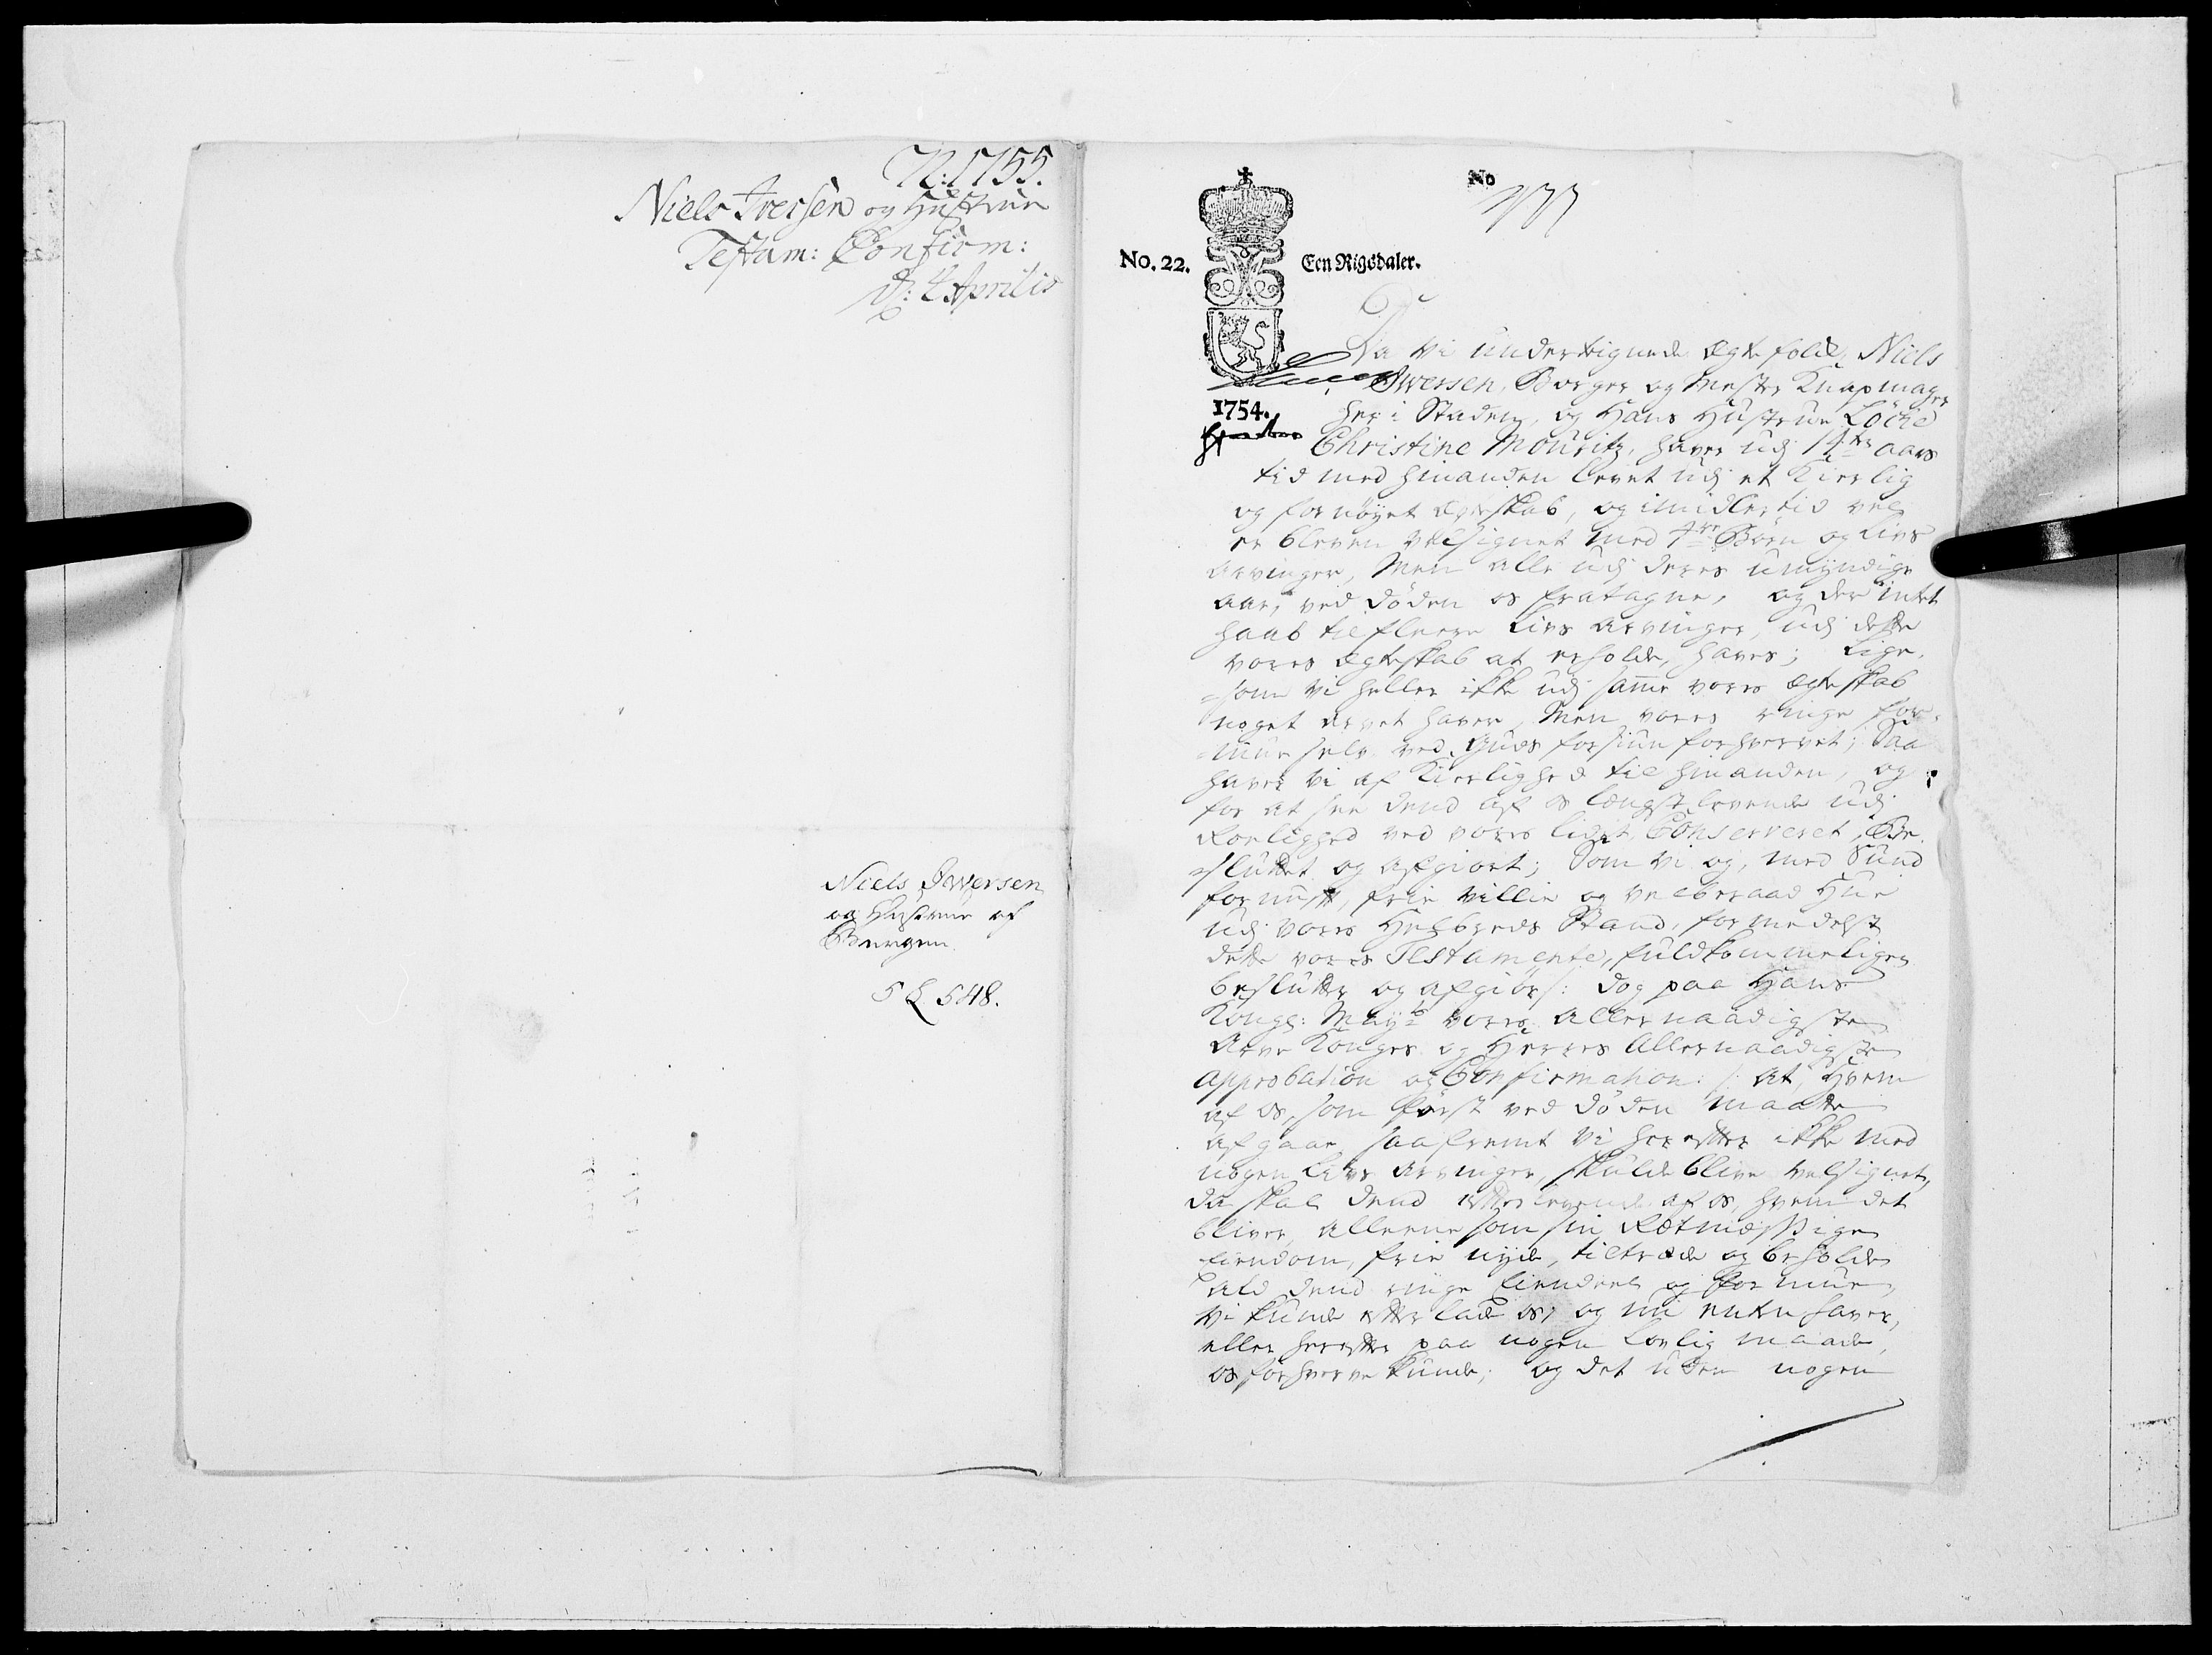 N: 1755.
Niels Iversen og Hustrue
Testam: Confirm:
d: 4 Aprilis
Niels Iwersen
og Hustrue af
Bergen.
5 L 548.
No
No. 22.
Een Rigsdaler.
1754.
Da Vi undertegnede Ægte folk, Niels
Iwersen, Borger og Mester Knapmager
her i Staden, og Hans Hustrue Locke
Christine Mouritz, haver udj 14ten aars
tid med hinanden levet udj et Kierlig
og fornöyet Ægteskab, og imidlertid vel
er bleven velsignet med 4re Börn og Livs
Arvinger, Men alle udj deres umyndige
aar, ved döden os fratagne, og der intet
haab til fleere Livs Arvinger, udj dette
vores Ægteskab at erholde, haves; Lige-
=som Vi heller ikke udj samme vores Ægteskab
noget arvet haver, Men vores ringe for-
=mue selv ved Guds forsiun forhvervet; Saa
haver Vi af Kierlighed til hinanden, og
for at see dend af os længstlevende udj
Roelighed ved vores lidet Conserveret, Be-
=sluttet og afgiort; Som Vi og, med Sund
fornuft, frie Villie og velberaad Hue
udj vores Helbreds Stand, formedelst
dette vores Testamente, fuldkommeligen
beslutter og afgiör /: dog paa Hans
Kongl: Mayts vores Allernaadigste
Arve Konges og Herres Allernaadigste
Approbation og Confirmation: /: At, Hvem
af os, som först ved döden maatte
afgaae, saafremt Vi herefter ikke med
nogen Livs Arvinger, skulde blive velsignet,
da skal dend efterlevende af os, hvem det
bliver, alleene som sin Rætmæssige
Eiendom, frie nyde, tiltræde og beholde
ald dend ringe Eiendeel og formue,
Vi kunde efterlade os, og nu enten haver,
eller herefter paa nogen lovlig maade,
os forhverve kunde; og det uden nogen